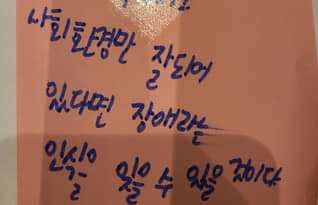 사회환경만 잘되어
있다면 장애라는
인식을 잊을 수 있을 것이다